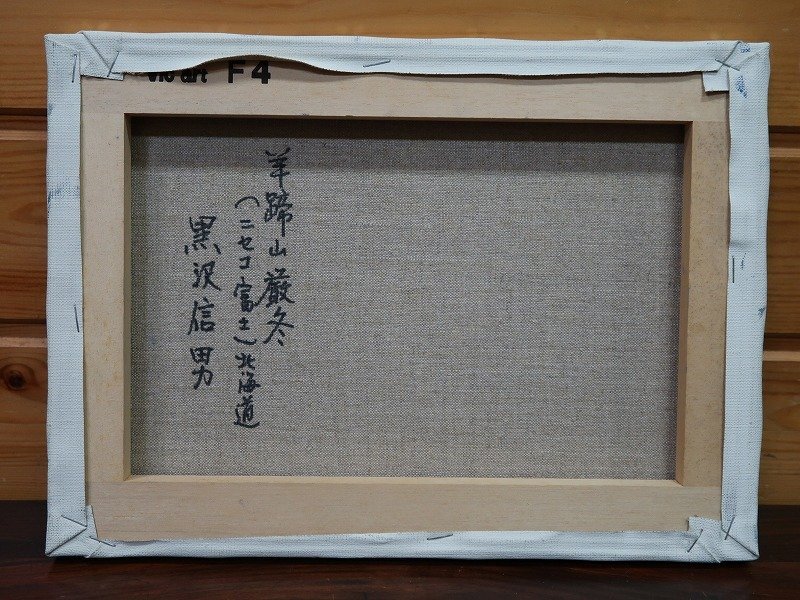 art F4
羊蹄山厳冬
（ニセコ富士）北海道
黒沢信男